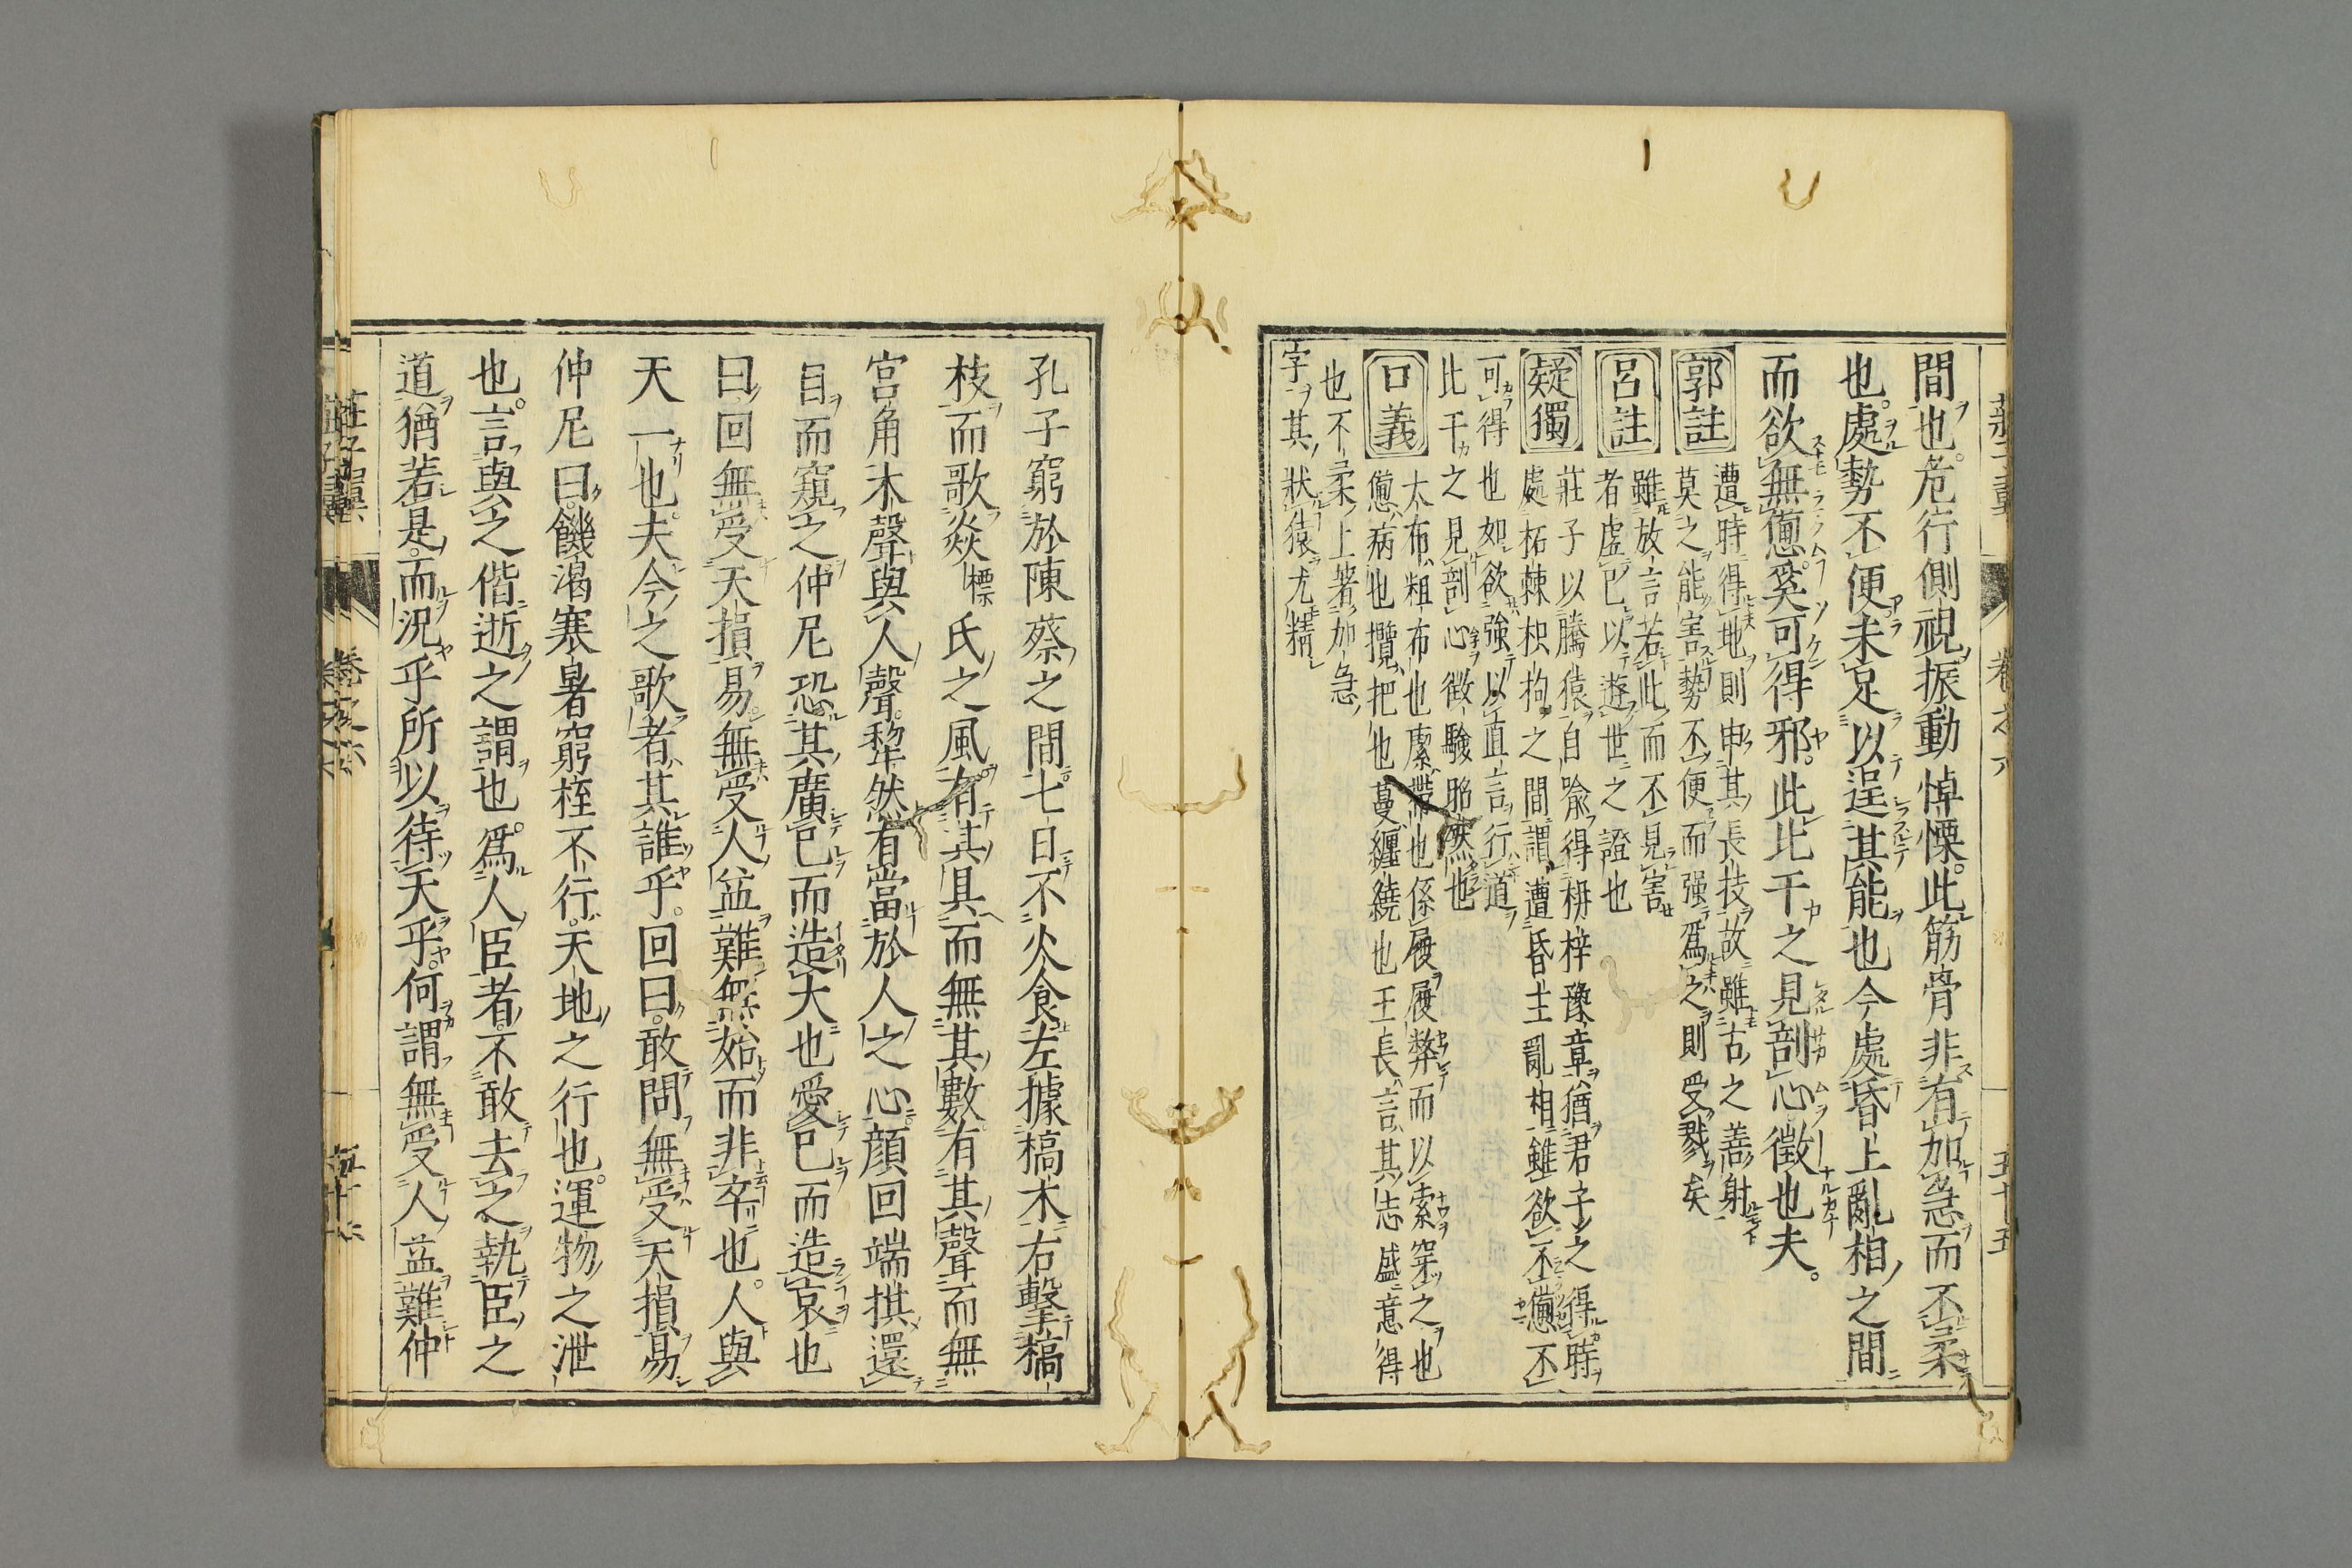 間也。危行側視振動悼慄。此筋骨非有加急而不柔
也。處勢不便未足以逞其能也今處昏上亂相之間
而欲無憊。奚可得邪。此比干之見剖心徵也夫。
郭註
遭時得地則申其長技故雖古之善射
莫之能害勢不便而强爲之則受戮矣
呂註
雖放言若此而不見害
者虛己以遊世之證也
疑獨
莊子以騰猿自喩得枏梓豫章猶君子之得時
處柘棘枳枸之間謂遭昏主亂相雖欲不憊不
可得也如欲強以直言行道
比干之見剖心徵驗昭然也
口義
大布粗布也緳帶也係履履弊而以索穿之也
憊病也攬把也蔓纏繞也王長言其志盛意得
也不柔上著加急
字其狀猿尤精
孔子窮於陳蔡之間七日不火食左據槁木右擊槁
枝而歌焱標氏之風有其具而無其數有其聲而無
宮角木聲與人聲。犂然有當於人之心。顔回端拱還
目而窺之仲尼恐其廣己而造大也愛己而造哀也
曰回無受天損易無受人益難無始而非卒也。人與
天一也。夫今之歌者其誰乎。回曰。敢問無受天損易
仲尼曰。饑渴寒暑窮桎不行。天地之行也。運物之泄
也。言與之偕逝之謂也。爲人臣者。不敢去之執臣之
道猶若是。而況乎所以待天乎。何謂無受人益難仲
卷之六
五十五